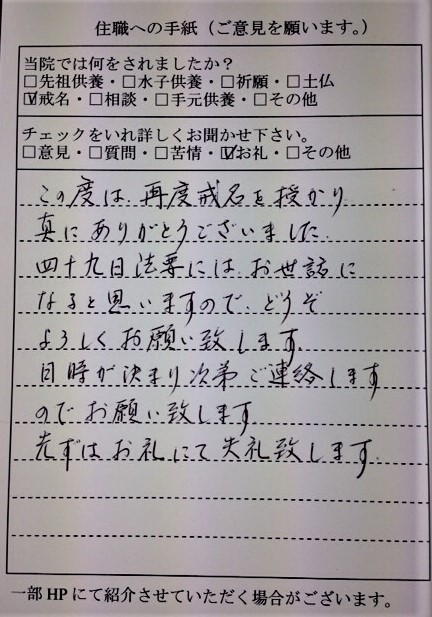 住職への手紙（ご意見を願います。）
当院では何をされましたか？
□先祖供養・□水子供養・□祈願・□土仏
☑戒名・□相談・□手元供養・□その他
チェックをいれ詳しくお聞かせ下さい。
□意見・□質問・□苦情・☑お礼・□その他
この度は、再度戒名を授かり
真にありがとうございました.
四十九日法要には、お世話に
なると思いますので、どうぞ
よろしくお願い致します.
日時が決まり次第ご連絡します
のでお願い致します
先ずはお礼にて失礼致します.
一部HPにて紹介させていただく場合がございます。